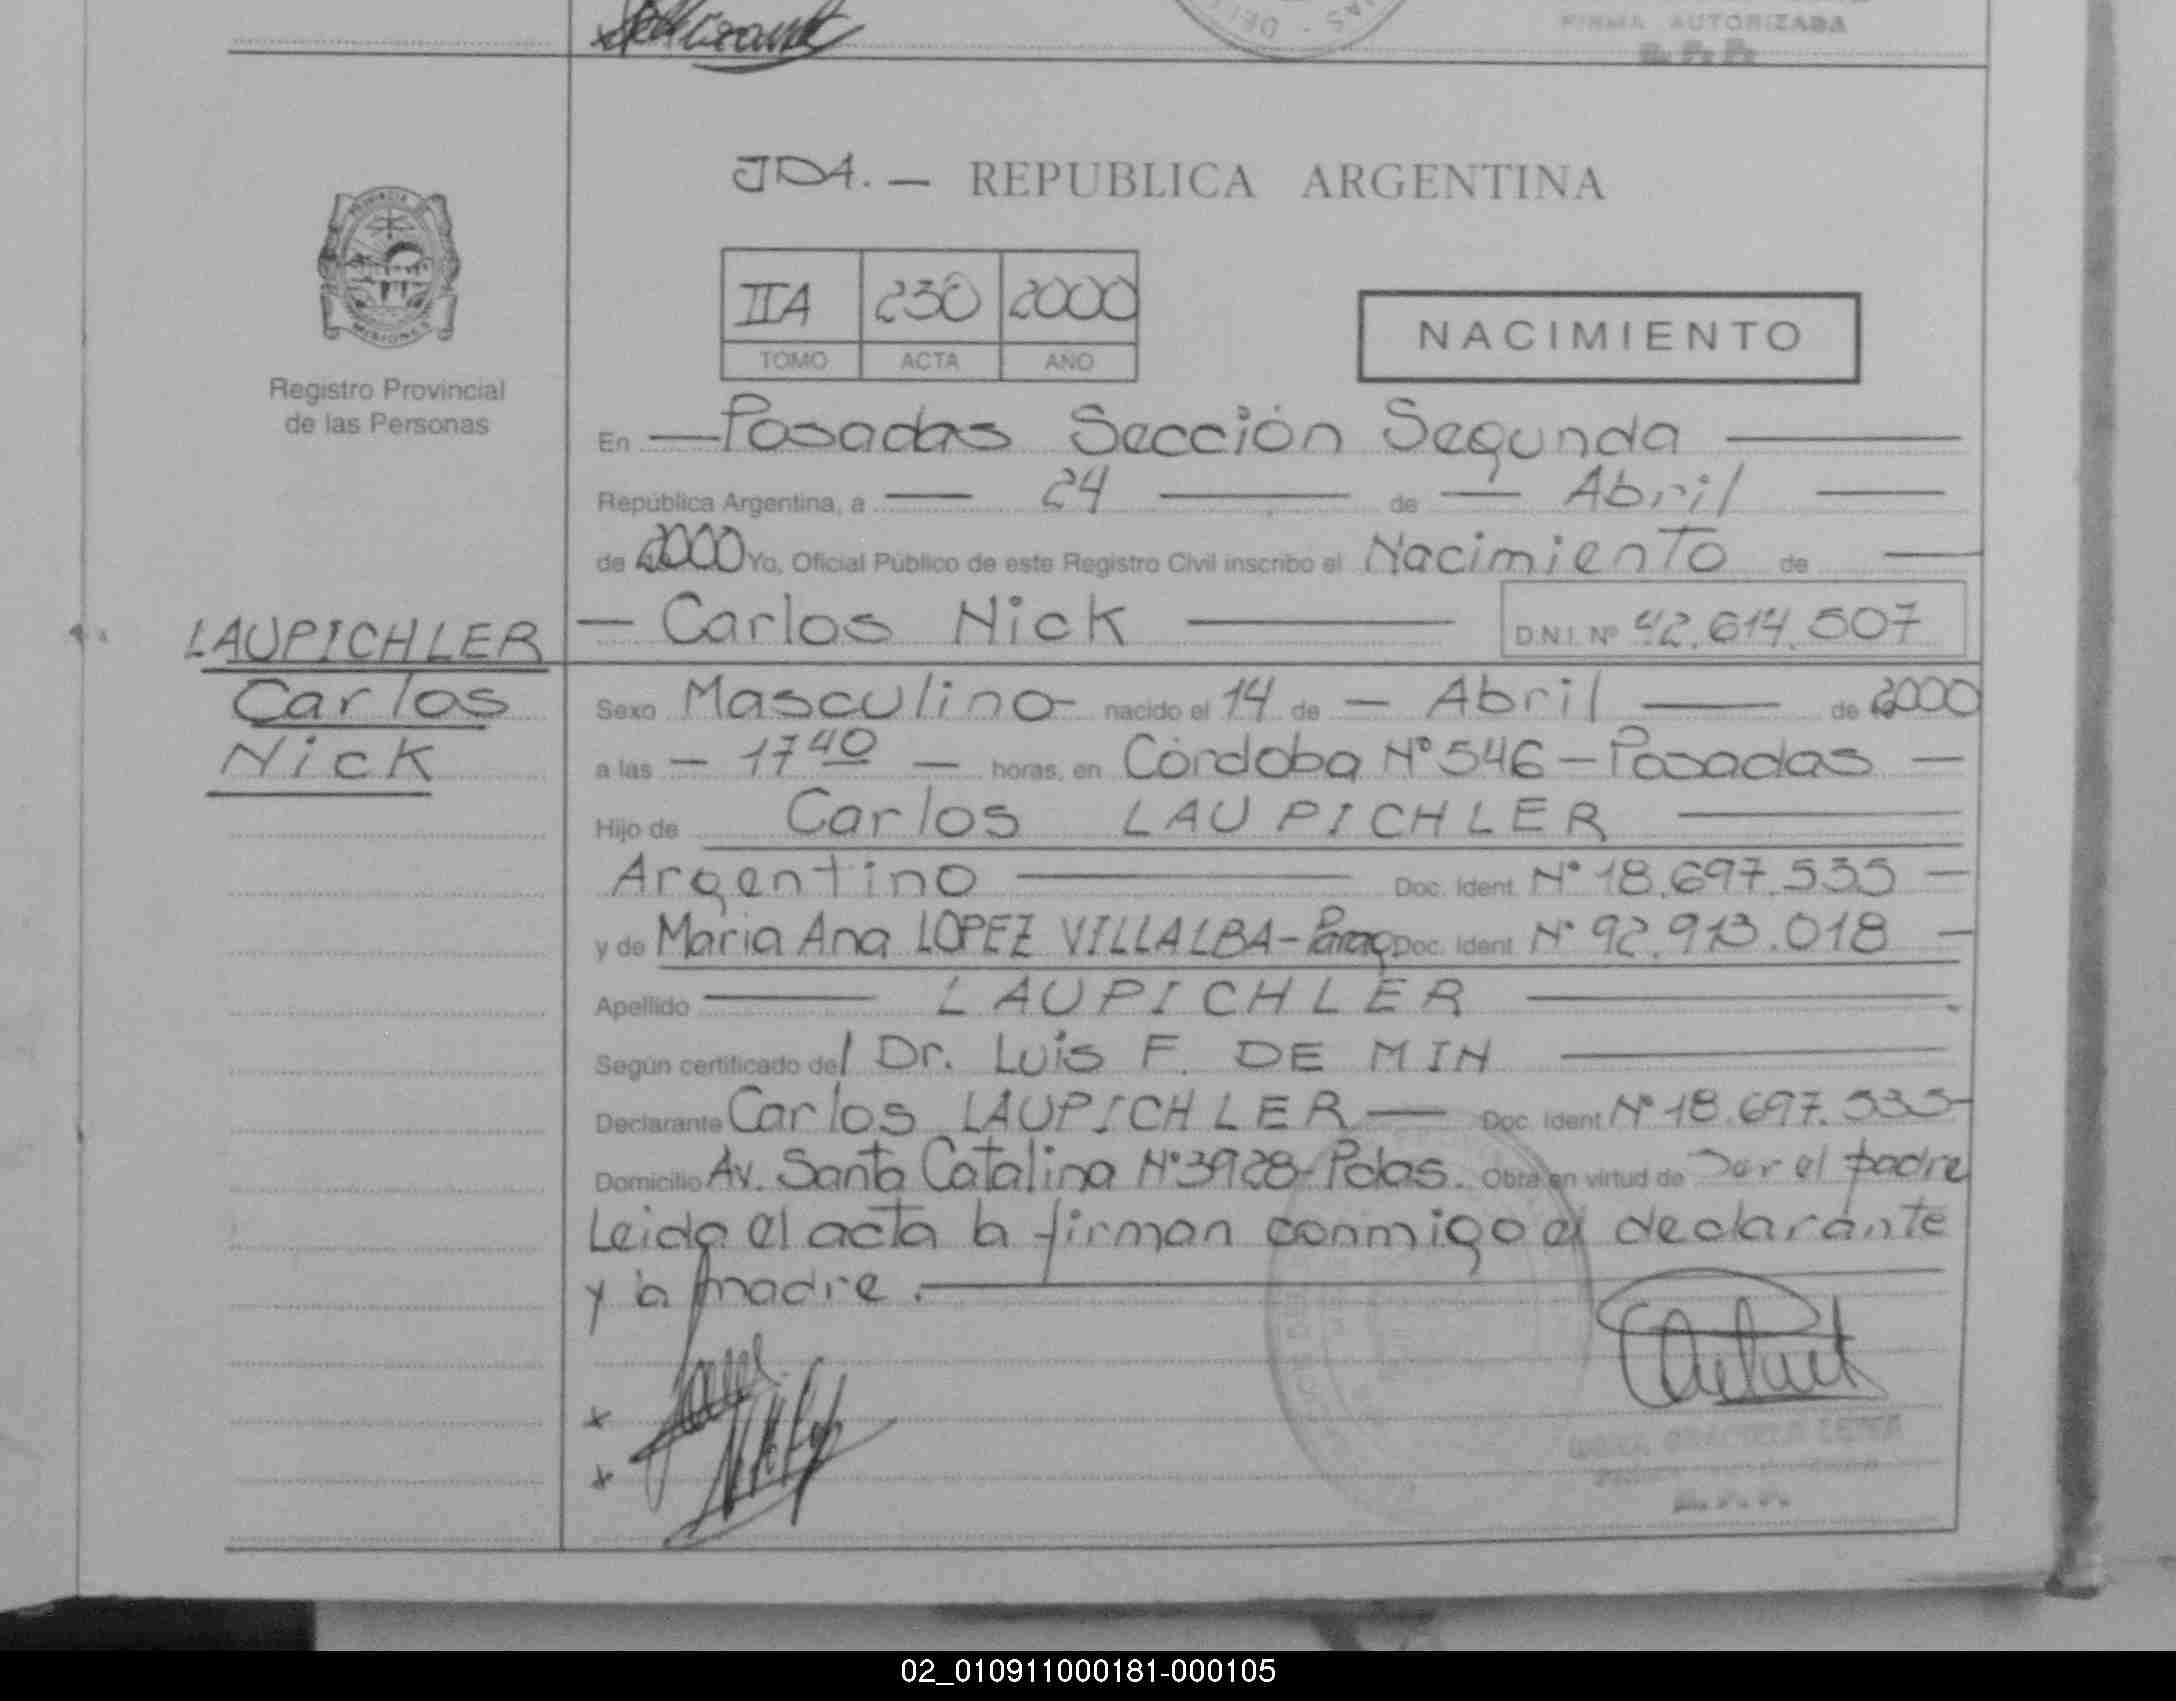 FIRMA AUTORIZADA
R. P. P.
JDA. — REPUBLICA ARGENTINA
PROVINCIA DE
MISIONES
Registro Provincial
de las Personas
IIA 230 2000
TOMO ACTA AÑO
NACIMIENTO
En — Posadas Sección Segunda —
República Argentina, a — 24 — de — Abril —
de 2000 Yo, Oficial Público de este Registro Civil inscribo el Nacimiento de —
— Carlos Nick — D.N.I. Nº 42.614.507
LAUPICHLER
Carlos
Nick
Sexo Masculino - nacido el 14 de — Abril — de 2000
a las — 17 40 — horas, en Córdoba Nº 546 - Posadas —
Hijo de Carlos LAUPICHLER —
Argentino — Doc. Ident. Nº 18.697.535 —
y de Maria Ana LOPEZ VILLALBA - Parag Doc. Ident. Nº 92.913.018 —
Apellido — LAUPICHLER —
Según certificado del Dr. Luis F. DE MIN —
Declarante Carlos LAUPICHLER — Doc. Ident. Nº 18.697.535-
Domicilio Av. Santa Catalina Nº 3928 - Pdas. Obra en virtud de Ser el padre
Leida el acta la firman conmigo el declarante
y la madre. —
R. P. P.
02_010911000181-000105